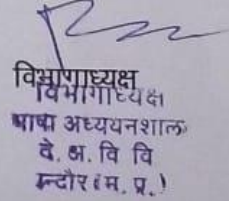 विभागाध्यक्ष
विभागाध्यक्ष
भाषा अध्ययनशाला
दे. अ. वि वि
इन्दौर (म. प्र.)